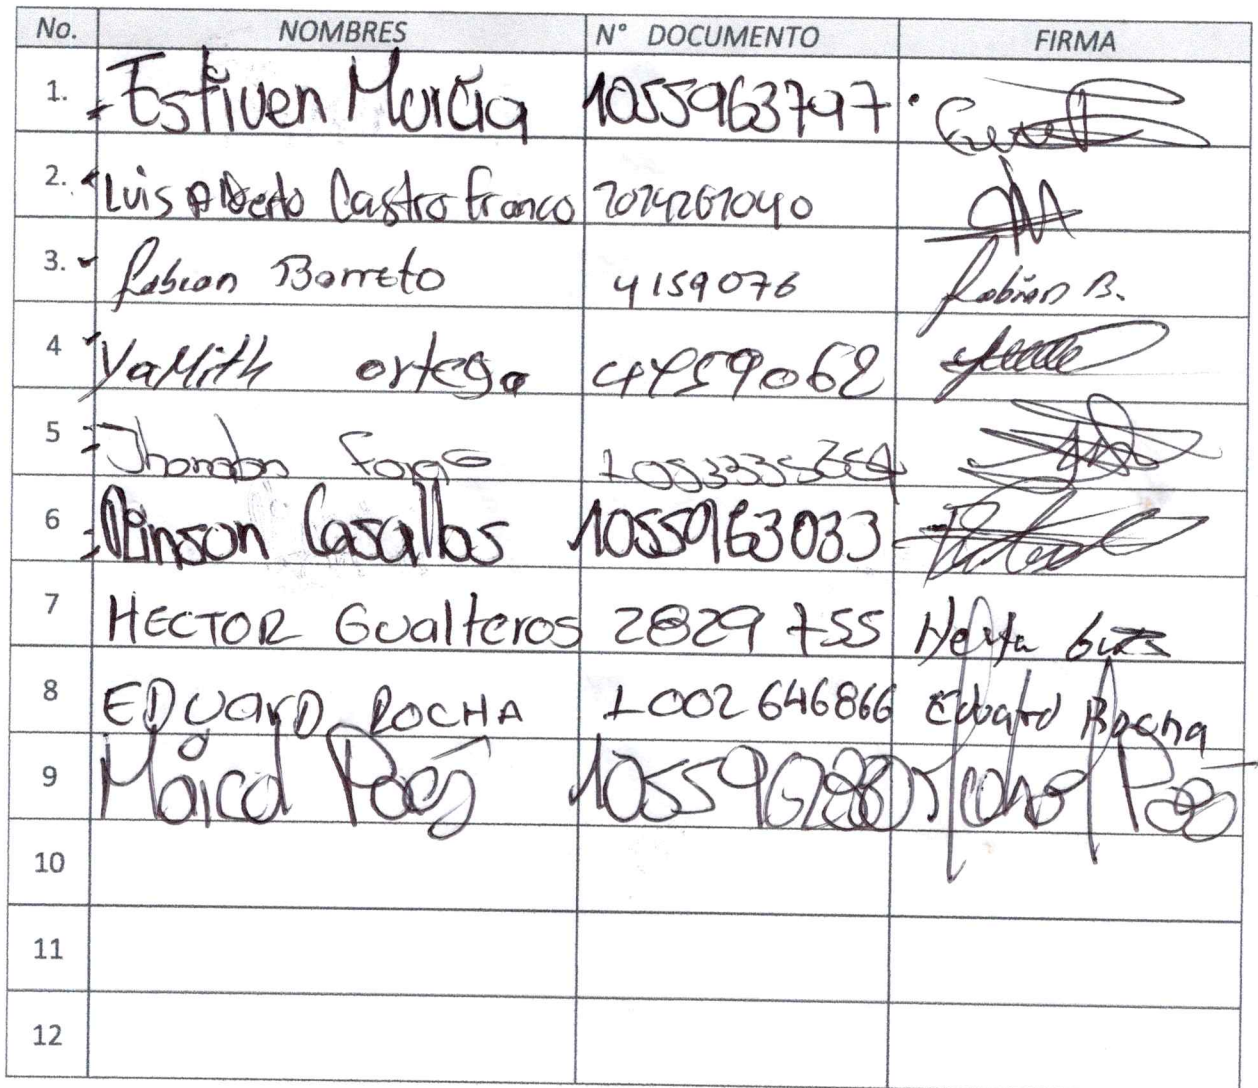 No. NOMBRES N° DOCUMENTO FIRMA
1. Estiven Murcia 1055963797
2. Luis Alberto Castro Franco 1014261040
3. Fabian Barreto 4159076 Fabian B.
4 Yamith ortega
5 Jhonatan
6 Dinson Casallas 1055963033
7 HECTOR Gualteros 2829755
8 EDUARD ROCHA 1002646866 Eduard Rocha
9 Maicol Paez Maicol Paez
10
11
12